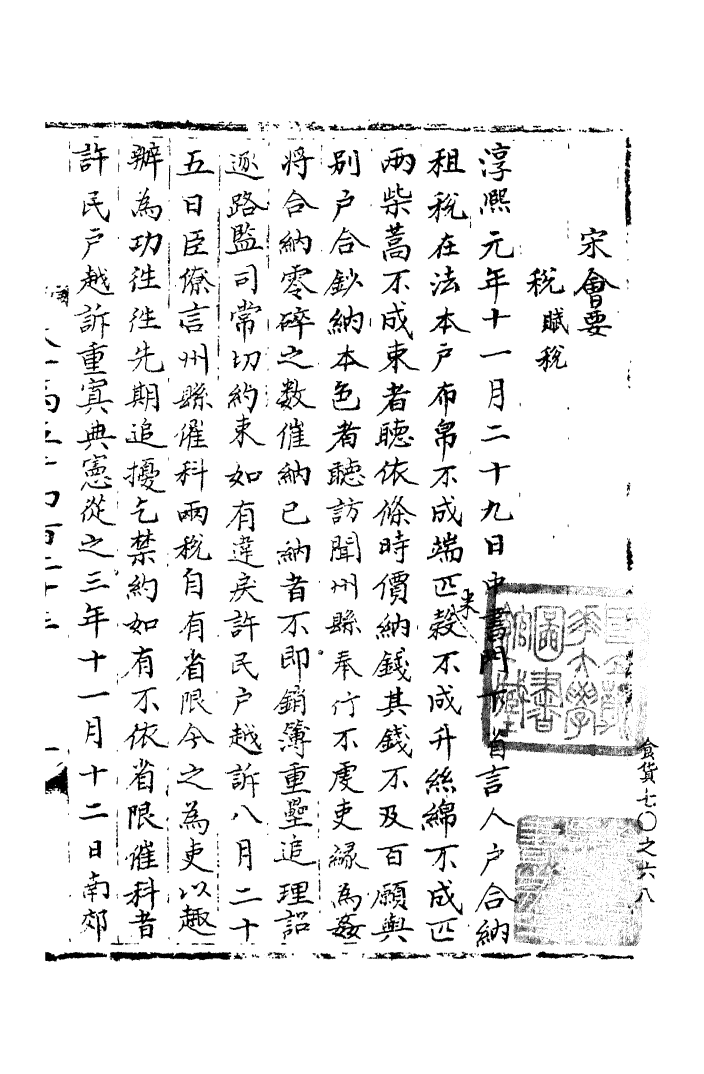 宋會要
稅 賦稅
淳熙元年十一月二十九日中書門下省言人户合納
租稅在法本户布帛不成端匹穀米不成升絲綿不成匹
兩柴蒿不成束者聽依條時價納錢其錢不及百願與
别户合鈔納本色者聽訪聞州縣奉行不虔吏緣為姦
將合納零碎之数催納已納者不即銷簿重疊追理詔
逐路監司常切約束如有違戾許民户越訴八月二十
五日臣僚言州縣催科兩稅自有省限今之為吏以趣
辦為功徃徃先期追擾乞禁約如有不依省限催科者
許民户越訴重寘典憲從之三年十一月十二日南郊
食貨七〇之六八